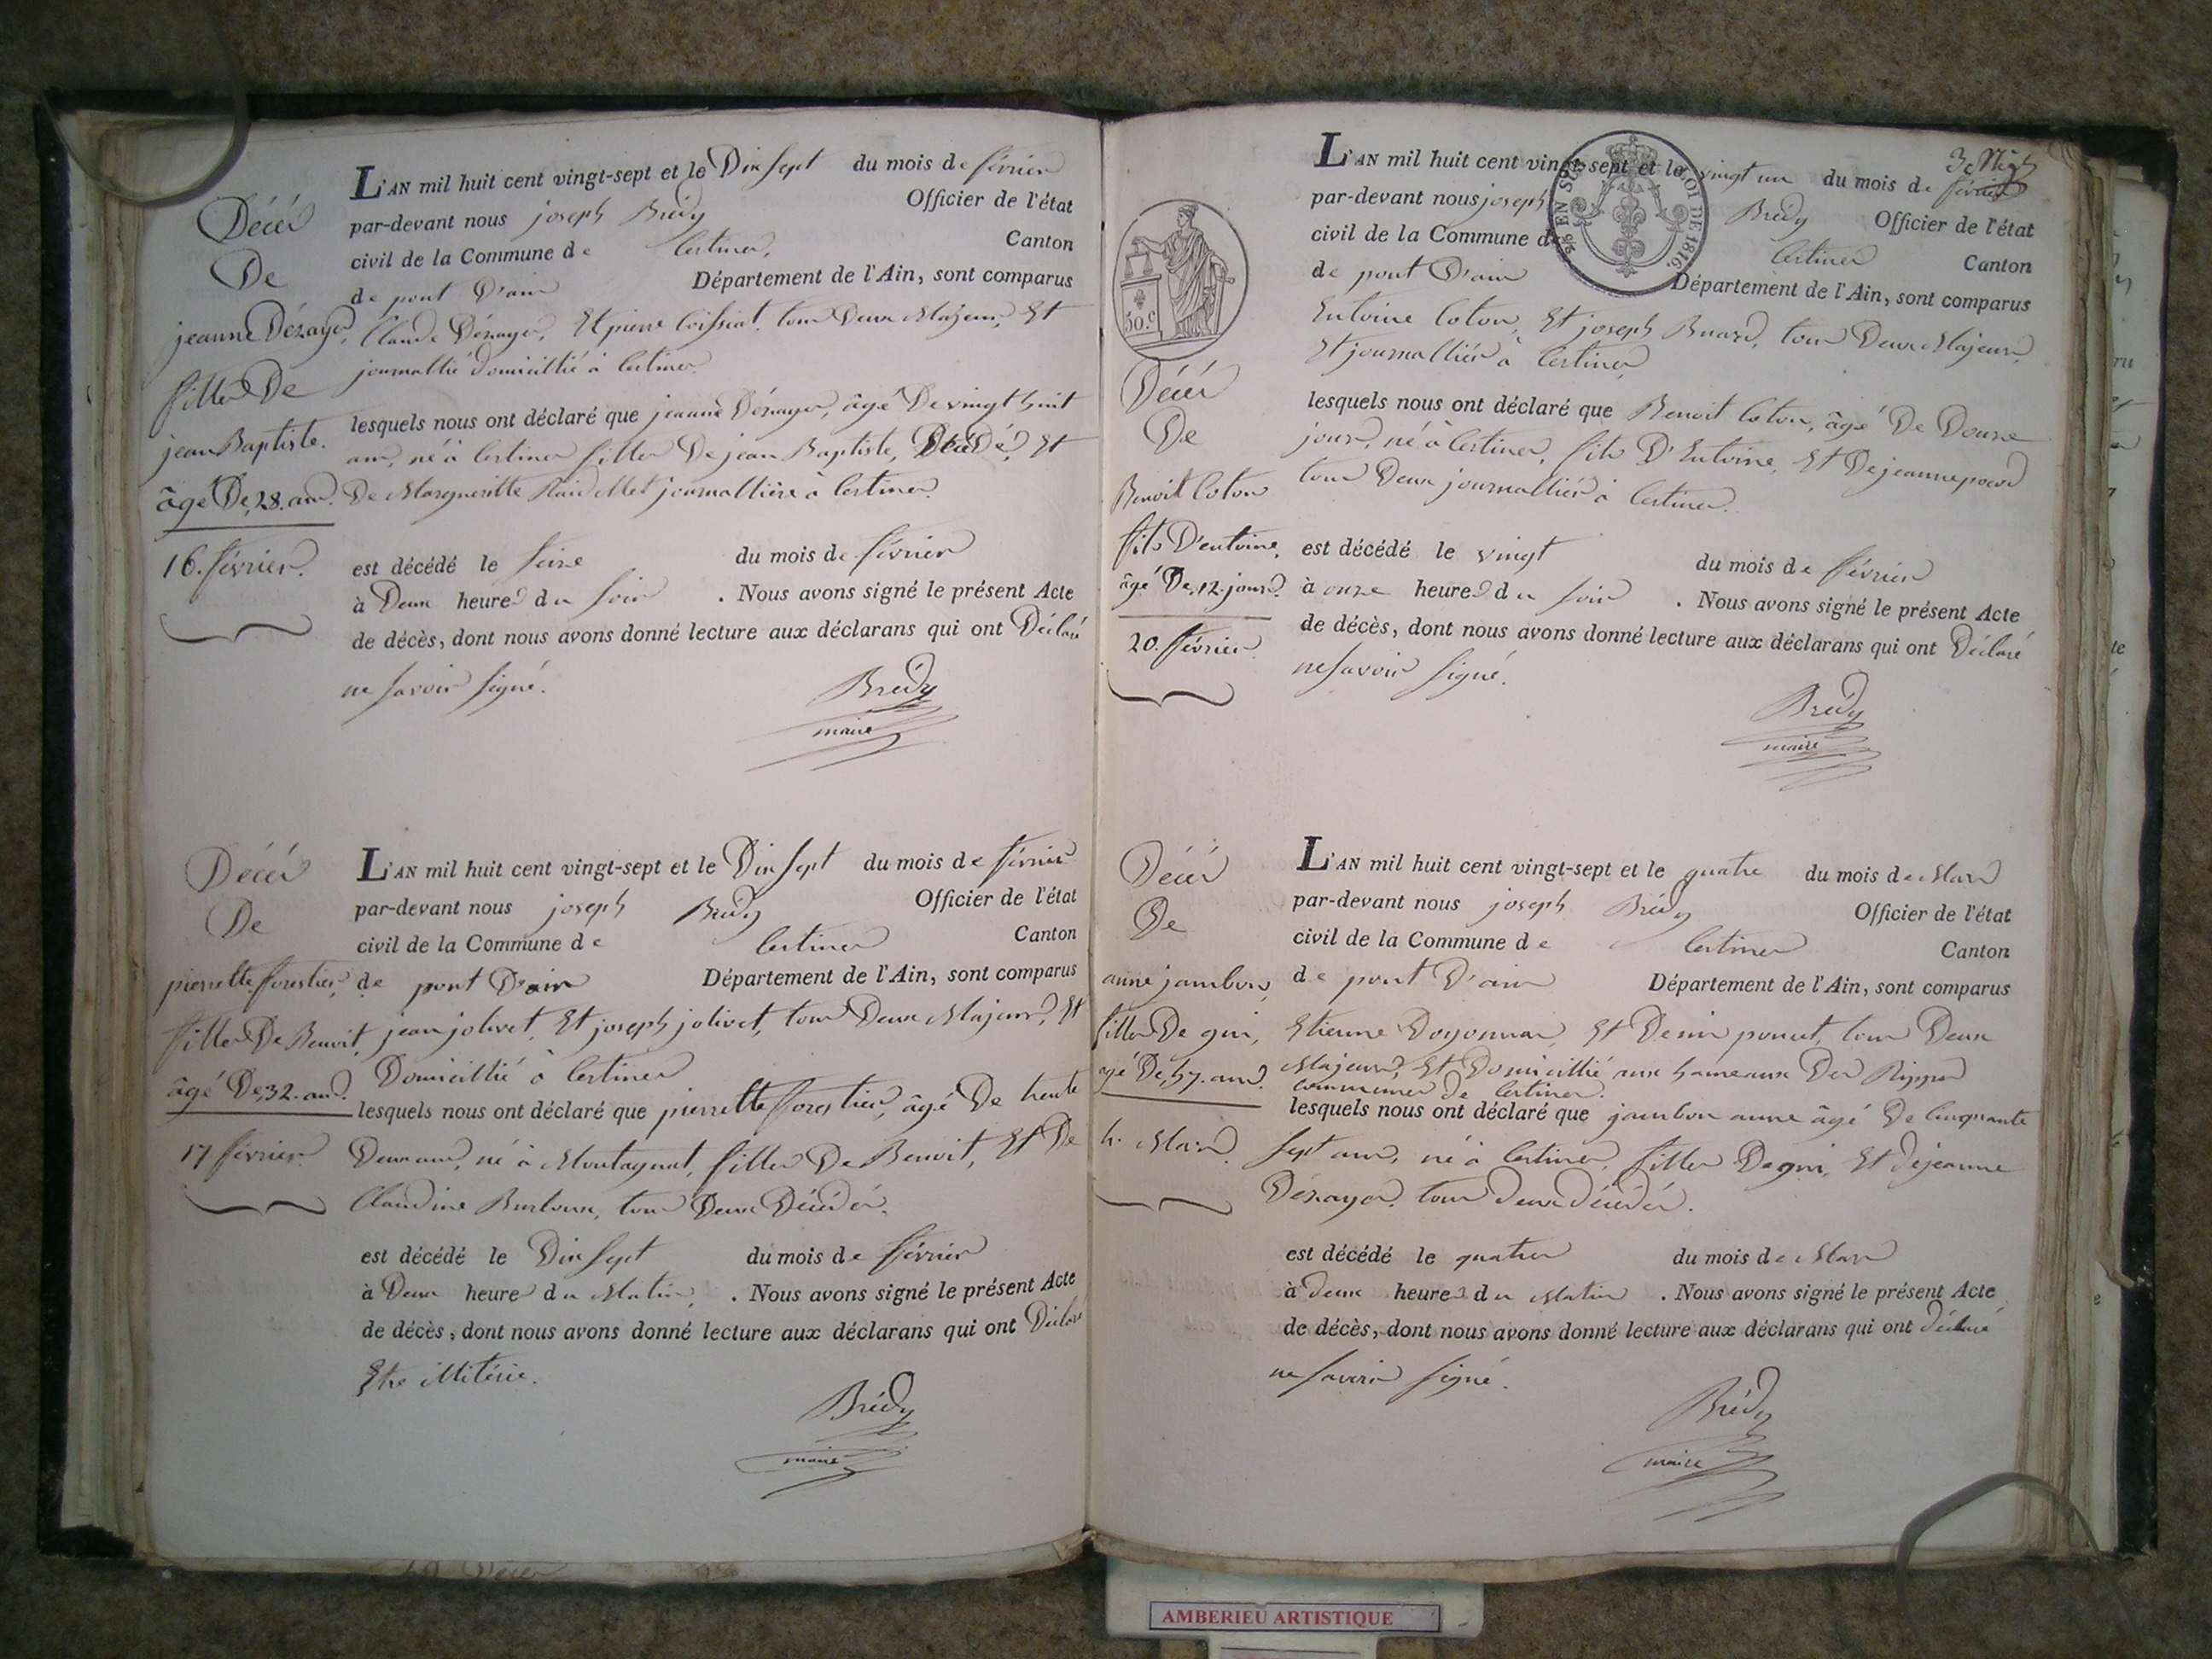 Décès
De
jeanne Dézayer,
filles De
jean Baptiste.
âgé De, 28. ans.
16. février.
L'AN mil huit cent vingt-sept et le Dix sept du mois de février
par-devant nous joseph Brédy Officier de l'état
civil de la Commune de Certines, Canton
de pont D'ain Département de l'Ain, sont comparus
Claude Dézayer, Et pierre Loissiat, tous Deux Majeurs, Et
journallié domicillié à Certines
lesquels nous ont déclaré que jeanne Dézayer, âgé De vingt huit
ans, né à Certines filles De jean Baptiste, Décédé, Et
De Margueritte journallière à Certines.
est décédé le seize du mois de février
à Deux heures du soir . Nous avons signé le présent Acte
de décès, dont nous avons donné lecture aux déclarans qui ont Déclaré
ne savoir signé.
Brédy
maire
Décès
De
pierrette forestier,
filles De Benoit,
âgé De, 32. ans.
17 février.
L'AN mil huit cent vingt-sept et le Dix sept du mois de février
par-devant nous joseph Brédy Officier de l'état
civil de la Commune de Certines Canton
de pont D'ain Département de l'Ain, sont comparus
jean jolivet, Et joseph jolivet, tous Deux Majeurs, Et
Domicillié à Certines
lesquels nous ont déclaré que pierrette forestier, âgé De trente
Deux ans, né à Montagnat, filles De Benoit, Et De
Claudine Burtoux, tous Deux Décédés.
est décédé le Dix sept du mois de février
à Deux heures du Matin, . Nous avons signé le présent Acte
de décès, dont nous avons donné lecture aux déclarans qui ont Déclaré
Etre
Brédy
maire
50.c
EN SUS LOI DE 1816
Décès
De
Benoit Coton
fils D'entoine,
âgé De, 12. jours.
20. février.
L'AN mil huit cent vingt-sept et le vingt un du mois de février
par-devant nous joseph Brédy Officier de l'état
civil de la Commune de Certines Canton
de pont D'ain Département de l'Ain, sont comparus
Entoine Coton, Et joseph Buard, tous Deux Majeurs,
Et journalliés à Certines
lesquels nous ont déclaré que Benoit Coton, âgé De Douze
jours, né à Certines, fils D'Entoine, Et De jeanne
tous Deux journalliés à Certines.
est décédé le vingt du mois de février
à onze heures du soir . Nous avons signé le présent Acte
de décès, dont nous avons donné lecture aux déclarans qui ont Déclaré
ne savoir signé.
Brédy
maire
Décès
De
anne jambon,
filles De gui,
agé De, 57. ans.
4. Mars.
L'AN mil huit cent vingt-sept et le quatre du mois de Mars
par-devant nous joseph Brédy Officier de l'état
civil de la Commune de Certines Canton
de pont D'ain Département de l'Ain, sont comparus
Etienne Doyonnax, Et Denis poncet, tous Deux
Majeurs, Et Domicillié aux hameaux Des Rippes
communes de Certines.
lesquels nous ont déclaré que jambon anne âgé De Cinquante
sept ans, né à Certines, filles De gui, Et de jeanne
Dézayer, tous deux décédés.
est décédé le quatre du mois de Mars
à deux heures du Matin . Nous avons signé le présent Acte
de décès, dont nous avons donné lecture aux déclarans qui ont déclaré
ne savoir signé.
Brédy
maire
AMBERIEU ARTISTIQUE